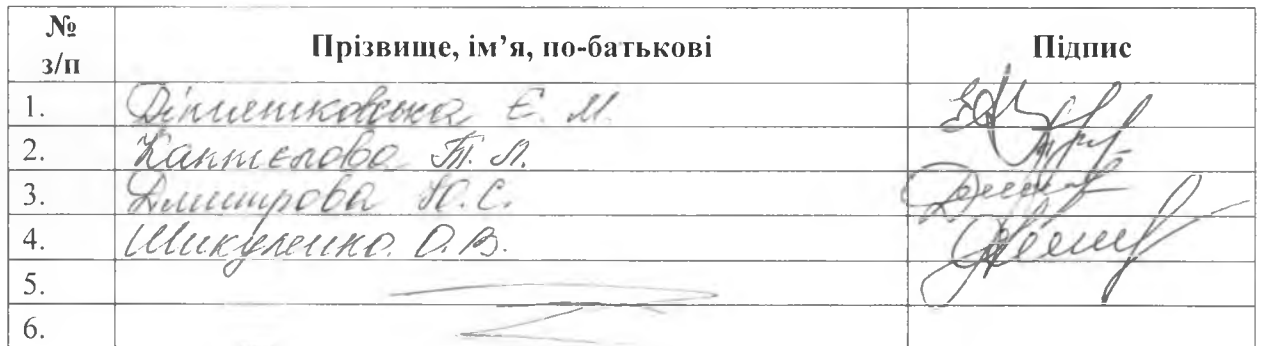 № з/п Прізвище, ім’я, по-батькові Підпис
1. Є. М.
2. Каптєлова Т. Л.
3. Дмитрова Ю. С.
4. Шикуленко О. В.
5.
6.